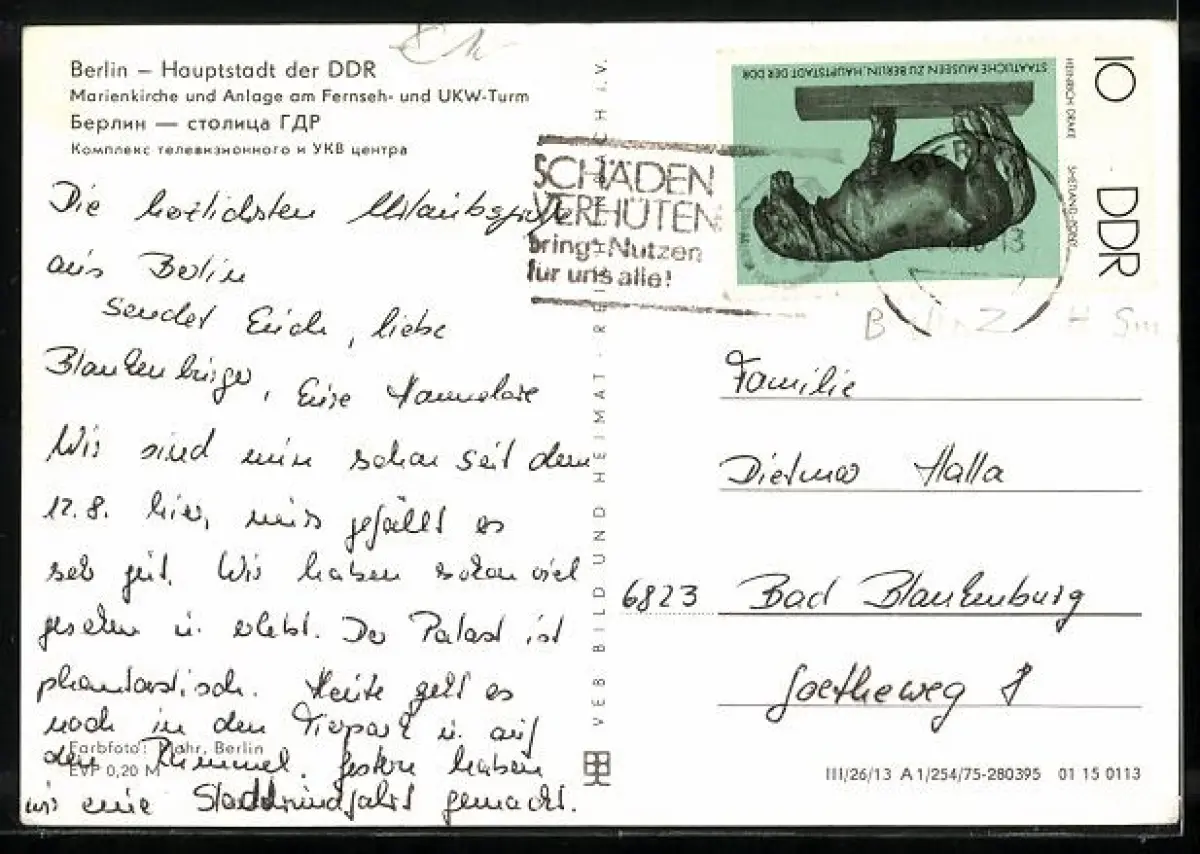 Berlin – Hauptstadt der DDR
Marienkirche und Anlage am Fernseh- und UKW-Turm
Берлин — столица ГДР
Комплекс телевизионного и УКВ центра
Die herzlichsten Urlaubsgrüße
aus Berlin
sendet Euch, liebe
Blankenburger, Eure Hannelore
Wir sind nun schon seit dem
12.8. hier, mir gefällt es
sehr gut. Wir haben schon viel
gesehen u. erlebt. Der Palast ist
phantastisch. Heute geht es
noch in den Tierpark u. auf
den Rummel. Gestern haben
wir eine Stadtrundfahrt gemacht.
Farbfoto: Mahr, Berlin
EVP 0,20 M
VEB BILD UND HEIMAT · REICHENBACH i.V.
SCHÄDEN
VERHÜTEN
bringt Nutzen
für uns alle!
STAATLICHE MUSEEN ZU BERLIN, HAUPTSTADT DER DDR
HEINRICH DRAKE SHETLAND-PONY
10 DDR
Familie
Dietmar Halla
6823 Bad Blankenburg
Goetheweg 8
III/26/13 A 1/254/75-280395 01 15 0113